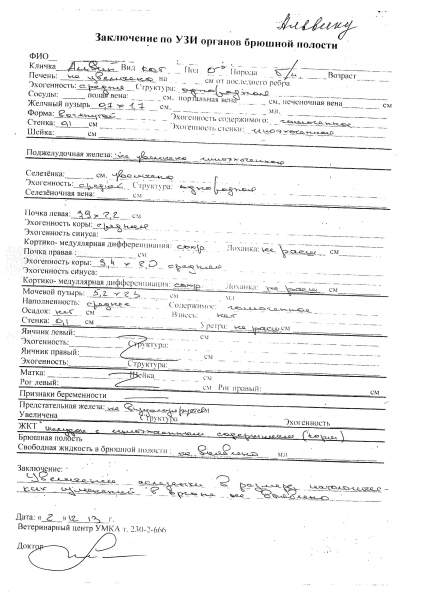 Альвину
Заключение по УЗИ органов брюшной полости
ФИО
Кличка Альвин Вид кот Пол ♂ Порода б/п Возраст
Печень: не увеличена на см от последнего ребра
Эхогенность: средняя Структура: однородная
Сосуды: полая вена см, портальная вена см, печеночная вена см
Желчный пузырь 0,7 х 1,7 см мл
Форма: вогнутой Эхогенность содержимого: гомогенное
Стенка: 0,1 см Эхогенность стенки:
Шейка: см
Поджелудочная железа: не увеличена
Селезёнка: см, увеличена
Эхогенность: средней Структура: однородная
Селезёночная вена: см
Почка левая: 3,9 х 2,2 см
Эхогенность коры: средняя
Эхогенность синуса:
Кортико- медуллярная дифференциация: сохр. Лоханка: не расш. см
Почка правая : см
Эхогенность коры: 3,4 х 2,0 средняя
Эхогенность синуса:
Кортико- медуллярная дифференциация: сохр. Лоханка: не расш см
Мочевой пузырь: 5,2 х 2,5 см мл
Наполненность: среднее Содержимое: гомогенное
Осадок: нет см Взвесь: нет
Стенка: 0,1 см Уретра: не расш см
Яичник левый: см
Эхогенность: Структура:
Яичник правый: см
Эхогенность: Структура:
Матка: Шейка см
Рог левый: см Рог правый: см
Признаки беременности
Предстательная железа: не визуализируется
Увеличена Структура Эхогенность
ЖКТ желудок с содержимым (корм)
Брюшная полость
Свободная жидкость в брюшной полости : не выявлено мл
Заключение:
Увеличение селезенки в размере, патологичес-
ких изменений в органах не выявлено.
Дата: «2 »12 13 г.
Ветеринарный центр УМКА т. 230-2-666
Доктор